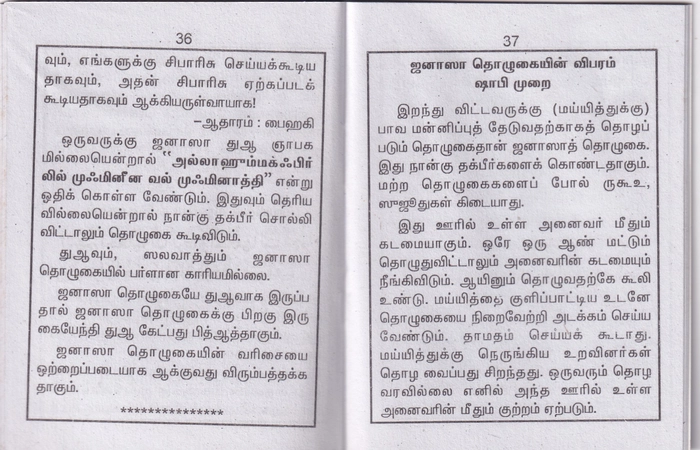 36
வும், எங்களுக்கு சிபாரிசு செய்யக்கூடிய
தாகவும், அதன் சிபாரிசு ஏற்கப்படக்
கூடியதாகவும் ஆக்கியருள்வாயாக!
–ஆதாரம் : பைஹகி
ஒருவருக்கு ஜனாஸா துஆ ஞாபக
மில்லையென்றால் "அல்லாஹும்மக்ஃபிர்
லில் முஃமினீன வல் முஃமினாத்தி" என்று
ஓதிக் கொள்ள வேண்டும். இதுவும் தெரிய
வில்லையென்றால் நான்கு தக்பீர் சொல்லி
விட்டாலும் தொழுகை கூடிவிடும்.
துஆவும், ஸலவாத்தும் ஜனாஸா
தொழுகையில் பர்ளான காரியமில்லை.
ஜனாஸா தொழுகையே துஆவாக இருப்ப
தால் ஜனாஸா தொழுகைக்கு பிறகு இரு
கையேந்தி துஆ கேட்பது பித்ஆத்தாகும்.
ஜனாஸா தொழுகையின் வரிசையை
ஒற்றைப்படையாக ஆக்குவது விரும்பத்தக்க
தாகும்.
***************
37
ஜனாஸா தொழுகையின் விபரம்
ஷாபி முறை
இறந்து விட்டவருக்கு (மய்யித்துக்கு)
பாவ மன்னிப்புத் தேடுவதற்காகத் தொழப்
படும் தொழுகைதான் ஜனாஸாத் தொழுகை.
இது நான்கு தக்பீர்களைக் கொண்டதாகும்.
மற்ற தொழுகைகளைப் போல் ருகூஉ,
ஸுஜூதுகள் கிடையாது.
இது ஊரில் உள்ள அனைவர் மீதும்
கடமையாகும். ஒரே ஒரு ஆண் மட்டும்
தொழுதுவிட்டாலும் அனைவரின் கடமையும்
நீங்கிவிடும். ஆயினும் தொழுவதற்கே கூலி
உண்டு. மய்யித்தை குளிப்பாட்டிய உடனே
தொழுகையை நிறைவேற்றி அடக்கம் செய்ய
வேண்டும். தாமதம் செய்யக் கூடாது.
மய்யித்துக்கு நெருங்கிய உறவினர்கள்
தொழ வைப்பது சிறந்தது. ஒருவரும் தொழ
வரவில்லை எனில் அந்த ஊரில் உள்ள
அனைவரின் மீதும் குற்றம் ஏற்படும்.